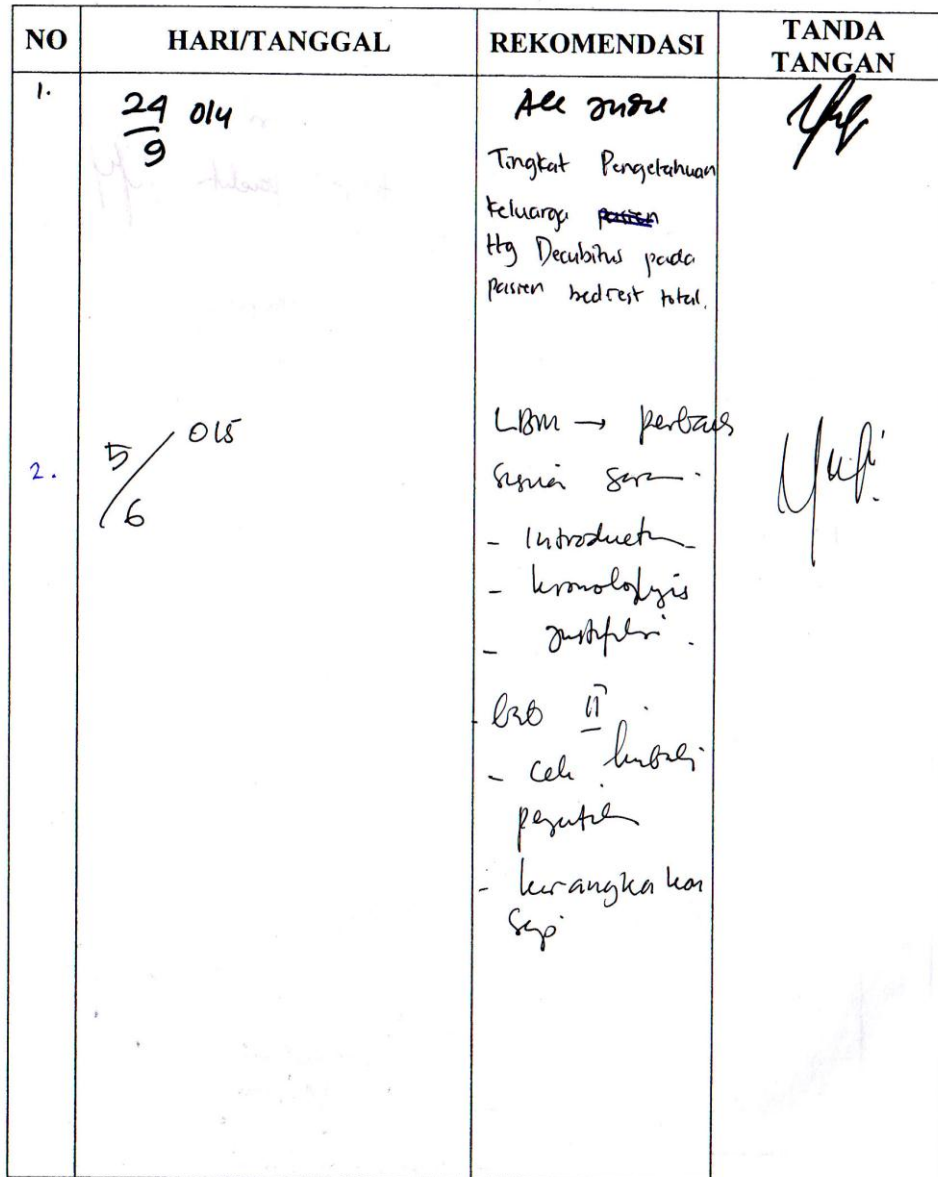 NO HARI/TANGGAL REKOMENDASI TANDA TANGAN
1. 24/9 014 Acc
Tingkat Pengetahuan
Keluarga pasien
Htg Decubitus pada
pasien bedrest total.
2. 5/6 015 LBM → perbaiki
sesuai saran
- Introduction
- kronologis
- justifikasi.
- bab II
- cek kembali
- kerangka kon
sep